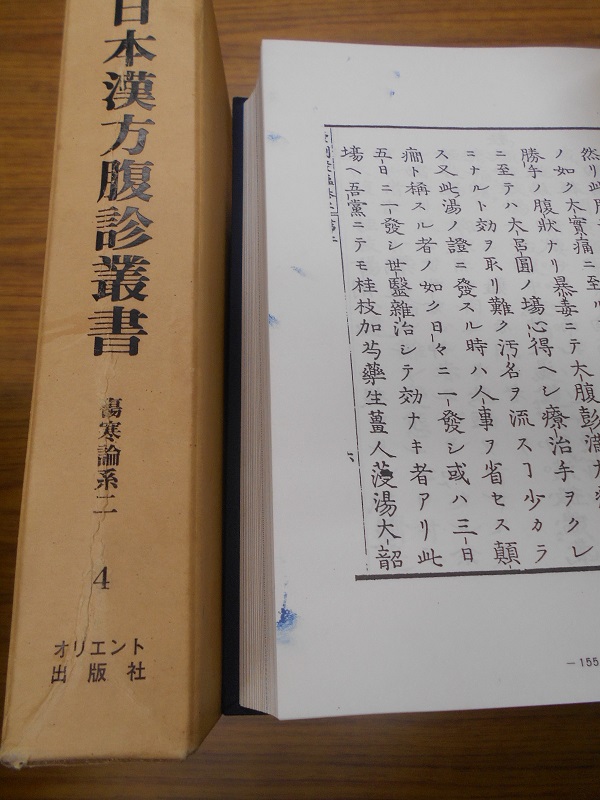 日本漢方腹診叢書
傷寒論系二
4
オリエント
出版社
然リ此
ノ如ク大實痛ニ至ル
勝手ノ腹狀ナリ暴毒ニテ大腹彭滿
ニ至テハ大呂圓ノ場心得ヘシ療治手ヲクレ
ニナルト効ヲ取リ難ク汚名ヲ流スヿ少カラ
ス又此湯ノ證ニ發スル時ハ人事ヲ省セス顛
癇ト稱スル者ノ如ク日々ニ一發シ或ハ三日
五日ニ一發シ世醫雜治シテ効ナキ者アリ此
場ヘ吾黨ニテモ桂枝加芍藥生薑人蓡湯大韶
六
—155